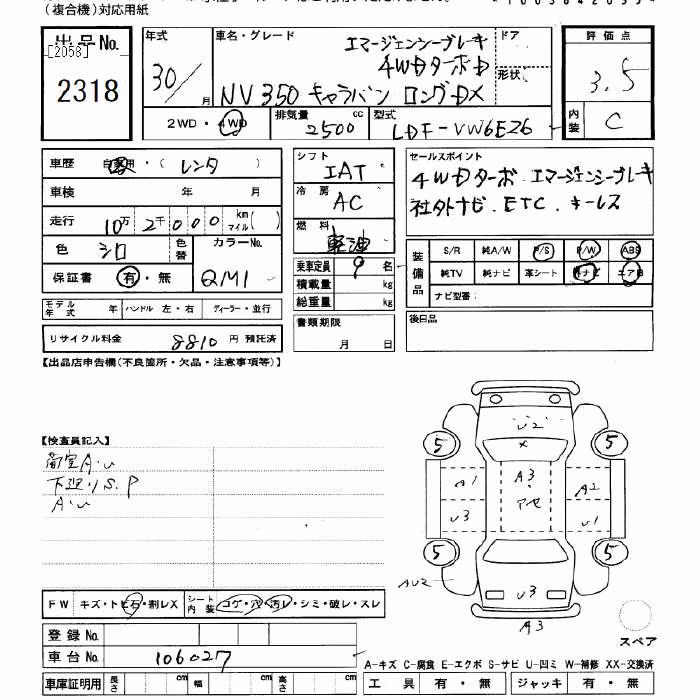 (複合機)対応用紙
出品No.
[2058]
2318
年式 30/ 月
車名・グレード エマージェンシーブレーキ
4WDターボD
NV350 キャラバン ロングDX
ドア
形状
評価点
3.5
内装 C
2WD・4WD
排気量 2500 cc
型式 LDF-VW6E26
車歴 自家用・( レンタ )
車検 年 月
走行 10万 2千 0 0 0 km マイル( )
色 シロ
色替
カラーNo. QM1
保証書 有・無
モデル年式 年 ハンドル 左・右 ディーラー・並行
リサイクル料金 8810 円 預託済
シフト IAT
冷房 AC
燃料 軽油
乗車定員 9 名
積載量 kg
総重量 kg
書類期限
月 日
セールスポイント
4WDターボ. エマージェンシーブレーキ
社外ナビ. ETC. キーレス
装備品
S/R 純A/W P/S P/W ABS
純TV 純ナビ 革シート
ナビ型番:
後日品
【出品店申告欄(不良箇所・欠品・注意事項等)】
【検査員記入】
荷室A・u
下廻りS.P
A・u
FW キズ・トビ石・割レX
シート内装 コゲ・穴・汚レ・シミ・破レ・スレ
登録No.
車台No. 106027
車庫証明用 長さ cm 幅 cm 高さ cm
U2
×
5 5
A1 A3 A2
アセ
U3 U1
5 5
AU2 U3
A3
スペア
A-キズ C-腐食 E-エクボ S-サビ U-凹ミ W-補修 XX-交換済
工具 有・無 ジャッキ 有・無